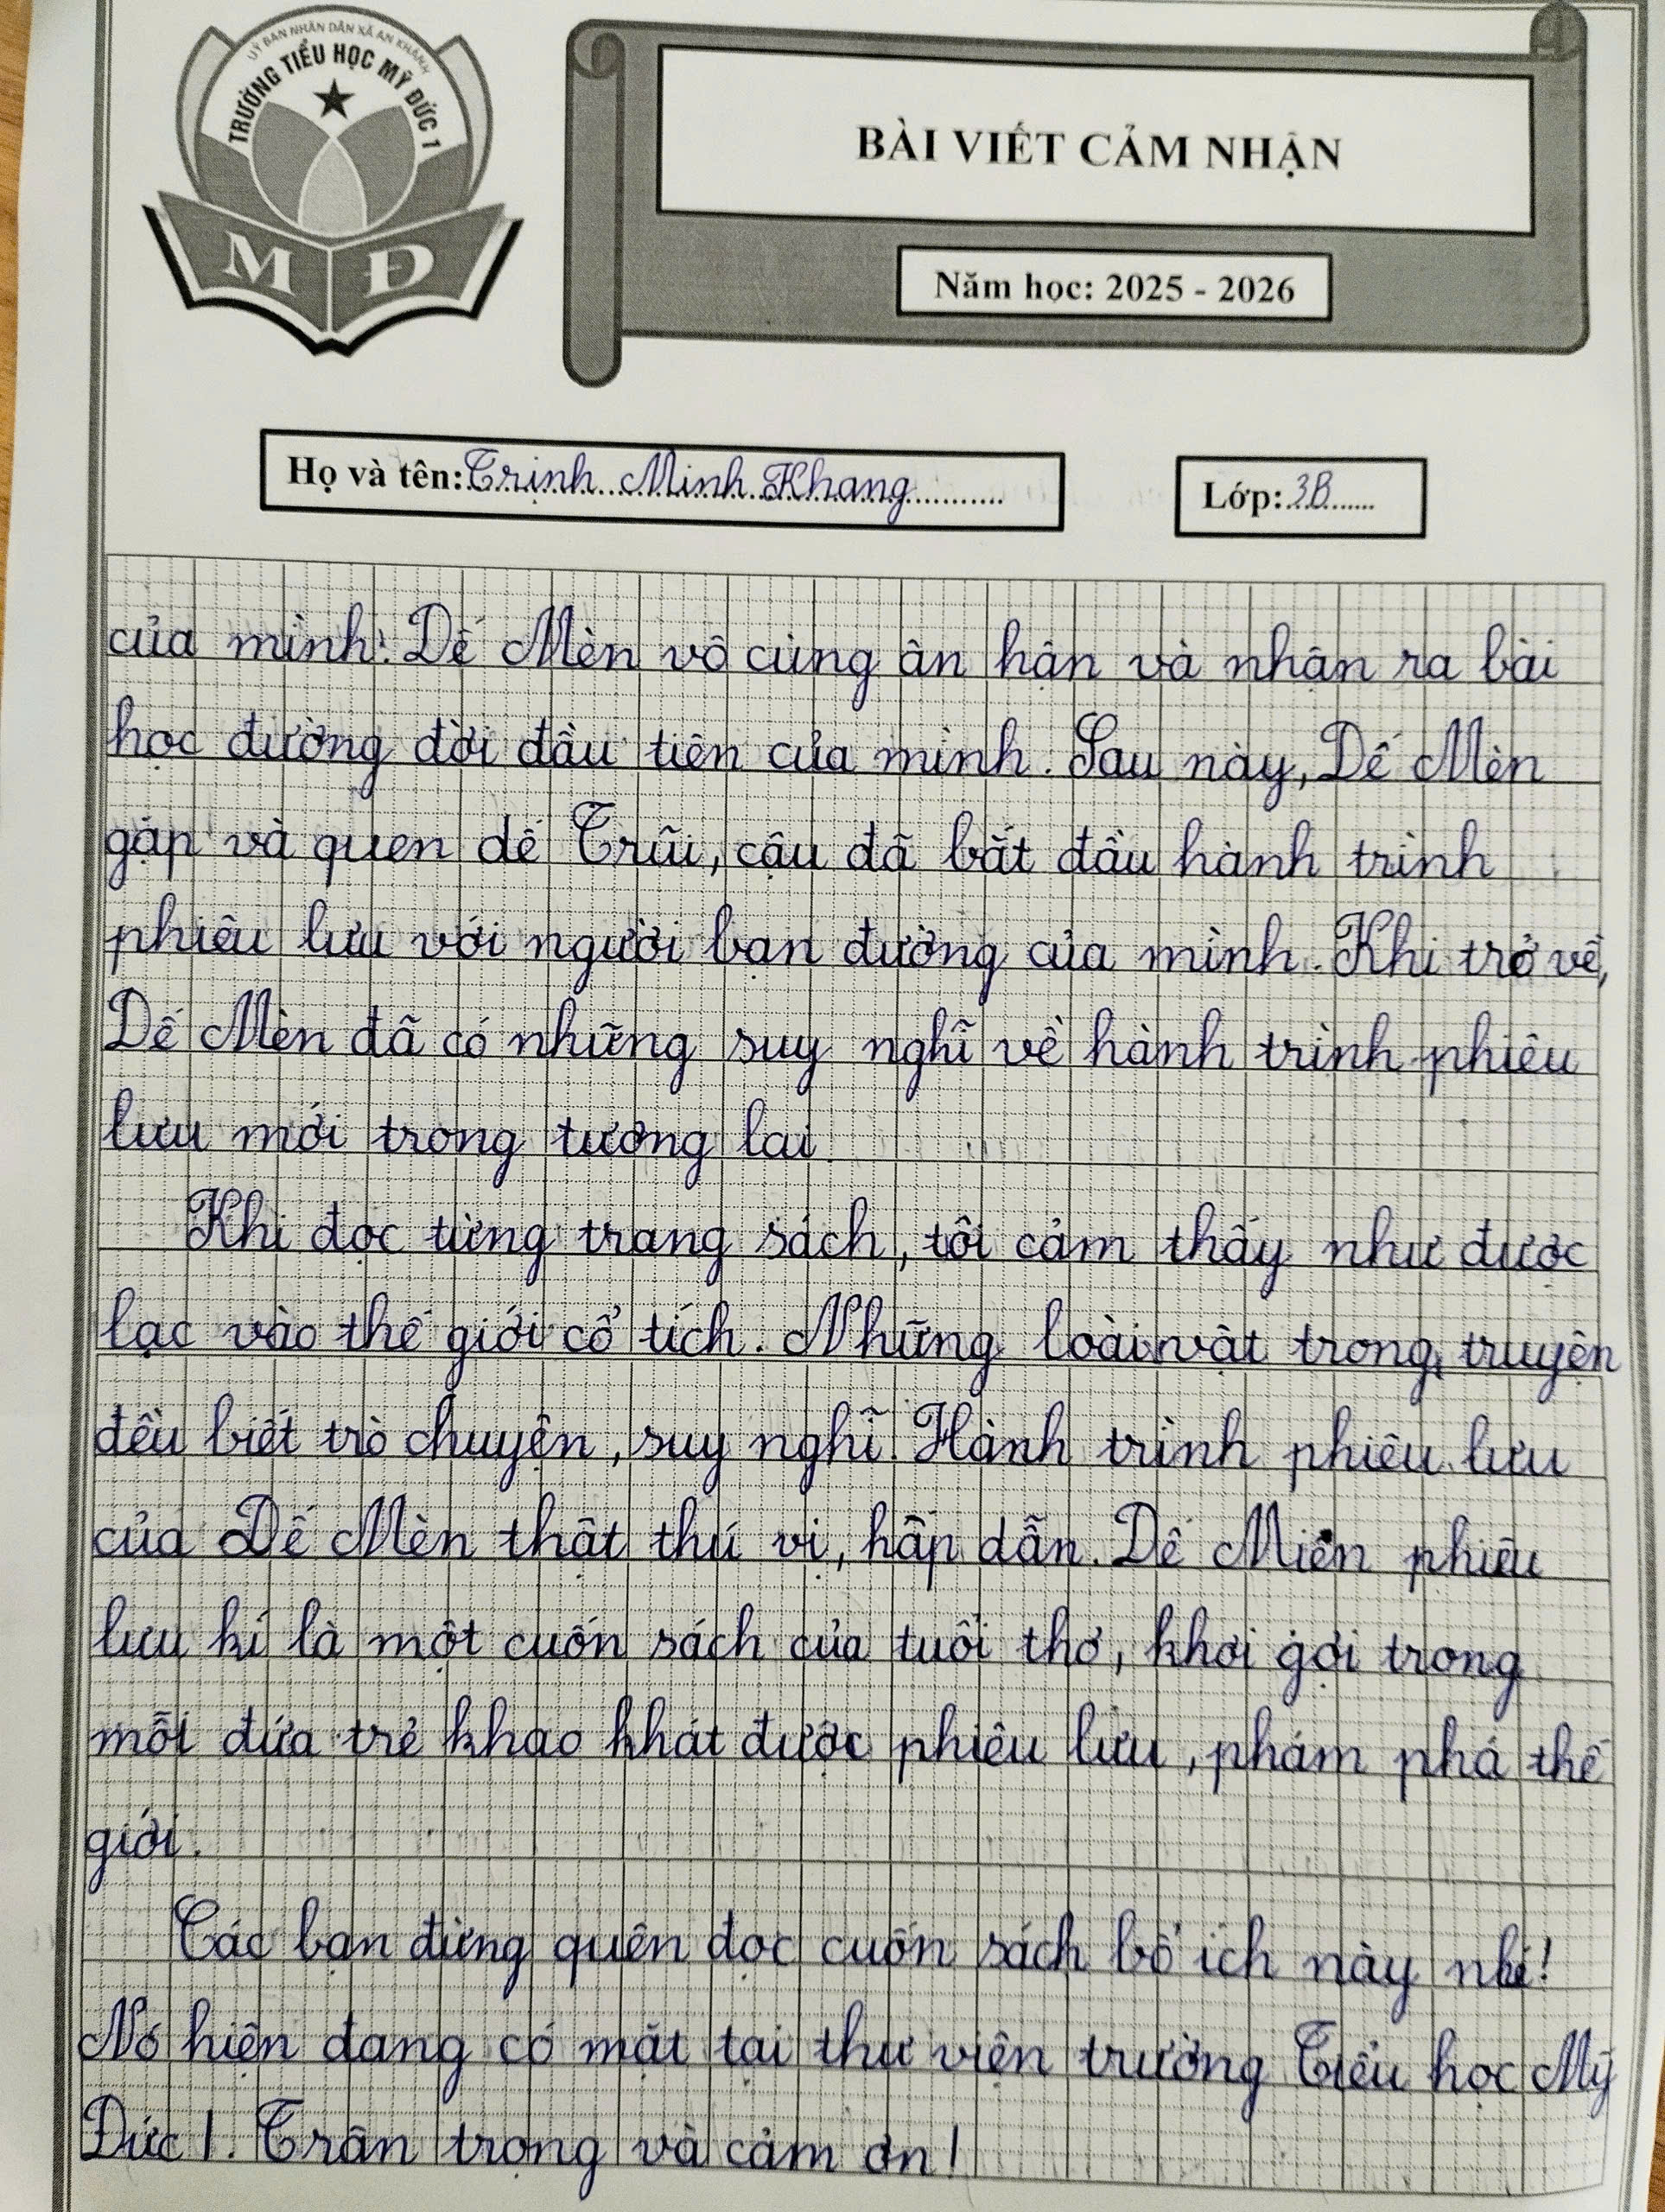 UỶ BAN NHÂN DÂN XÃ AN KHÁNH
TRƯỜNG TIỂU HỌC MỸ ĐỨC 1
M Đ
BÀI VIẾT CẢM NHẬN
Năm học: 2025 - 2026
Họ và tên: Trịnh Minh Khang
Lớp: 3B
của mình. Dế Mèn vô cùng ân hận và nhận ra bài
học đường đời đầu tiên của mình. Sau này, Dế Mèn
gặp và quen dế Trũi, cậu đã bắt đầu hành trình
phiêu lưu với người bạn đường của mình. Khi trở về,
Dế Mèn đã có những suy nghĩ về hành trình phiêu
lưu mới trong tương lai.
Khi đọc từng trang sách, tôi cảm thấy như được
lạc vào thế giới cổ tích. Những loài vật trong truyện
đều biết trò chuyện, suy nghĩ. Hành trình phiêu lưu
của Dế Mèn thật thú vị, hấp dẫn. Dế Mièn phiêu
lưu kí là một cuốn sách của tuổi thơ, khơi gợi trong
mỗi đứa trẻ khao khát được phiêu lưu, phám phá thế
giới.
Các bạn đừng quên đọc cuốn sách bổ ích này nhé!
Nó hiện đang có mặt tại thư viện trường Tiểu học Mỹ
Đức 1. Trân trọng và cảm ơn!